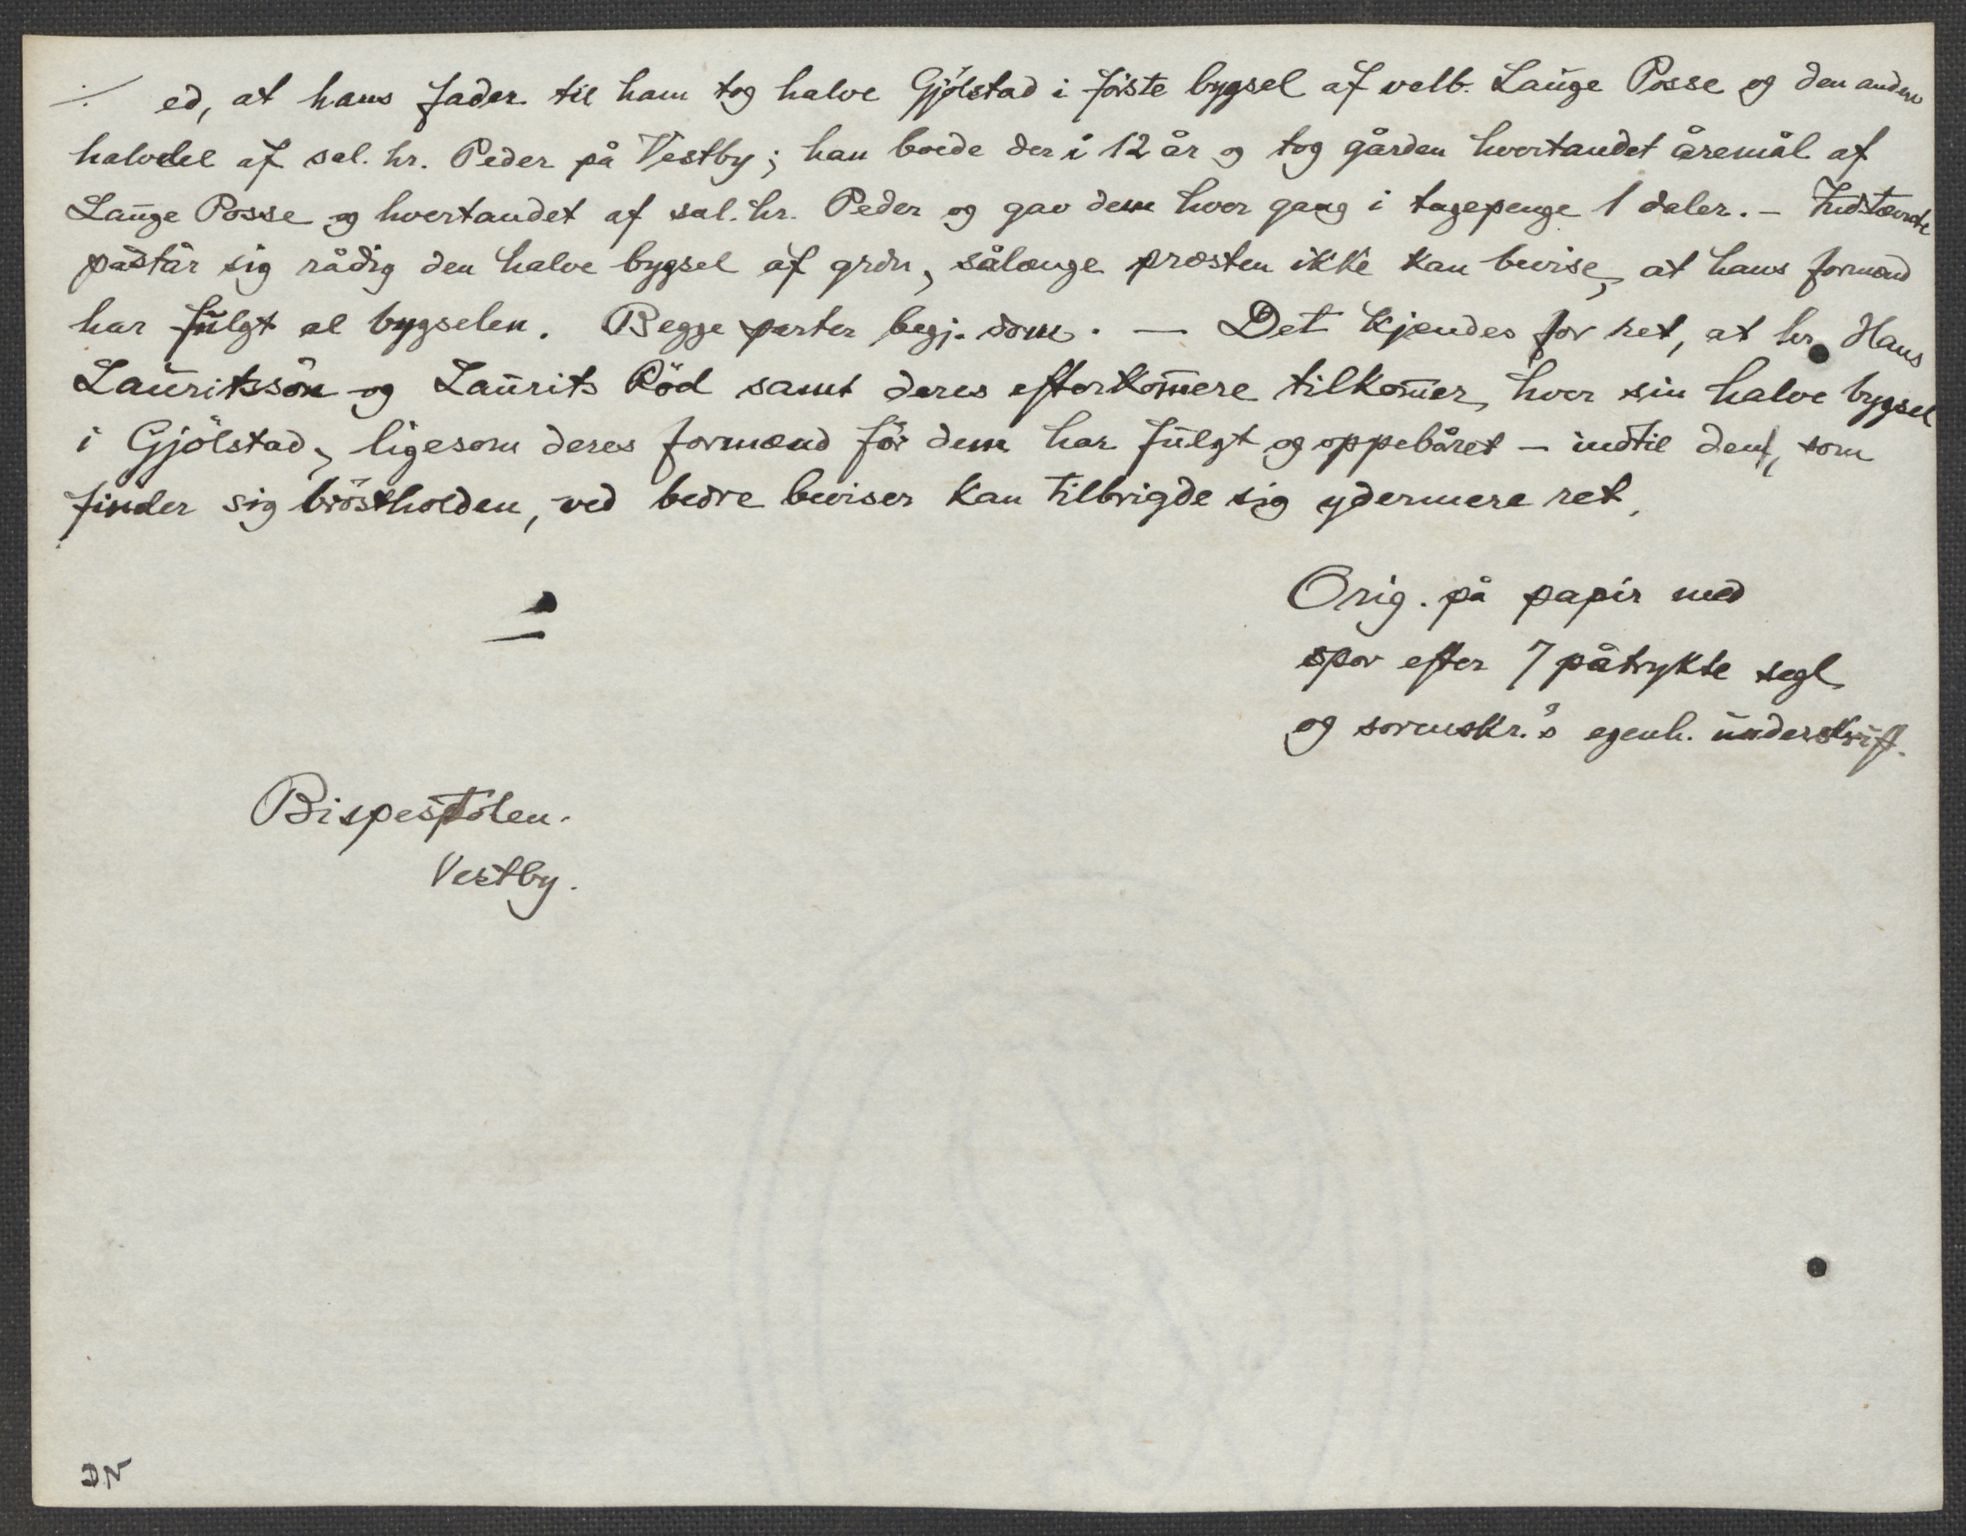 ./. ed, at hans fader til ham tog halve Gjölstad i förste bygsel af velb. Lauge Posse og den anden
halvdel af sal. hr. Peder på Vestby; han boede der i 12 år og tog gården hvertandet åremål af
Lauge Posse og hvertandet af sal. hr. Peder og gav dem hver gang i tagepenge 1 daler. - Indstævnte
påstår sig rådig den halve bygsel af grdn, sålænge præsten ikke kan bevise, at hans formænd
har fulgt al bygselen. Begge parter begj. dom. - Det kjendes for ret, at hr. Hans
Lauritssön og Laurits Röd samt deres efterkom̅ere tilkom̅er hver sin halve bygsel
i Gjölstad, ligesom deres formænd för dem har fulgt og oppebåret - indtil den, som
finder sig bröstholden, ved bedre beviser kan tilbrigde sig ydermere ret.
Orig. på papir med
spor efter 7 påtrykte segl
og sorenskr.'s egenh. underskrift.
Bispestolen.
Vestby.
DN